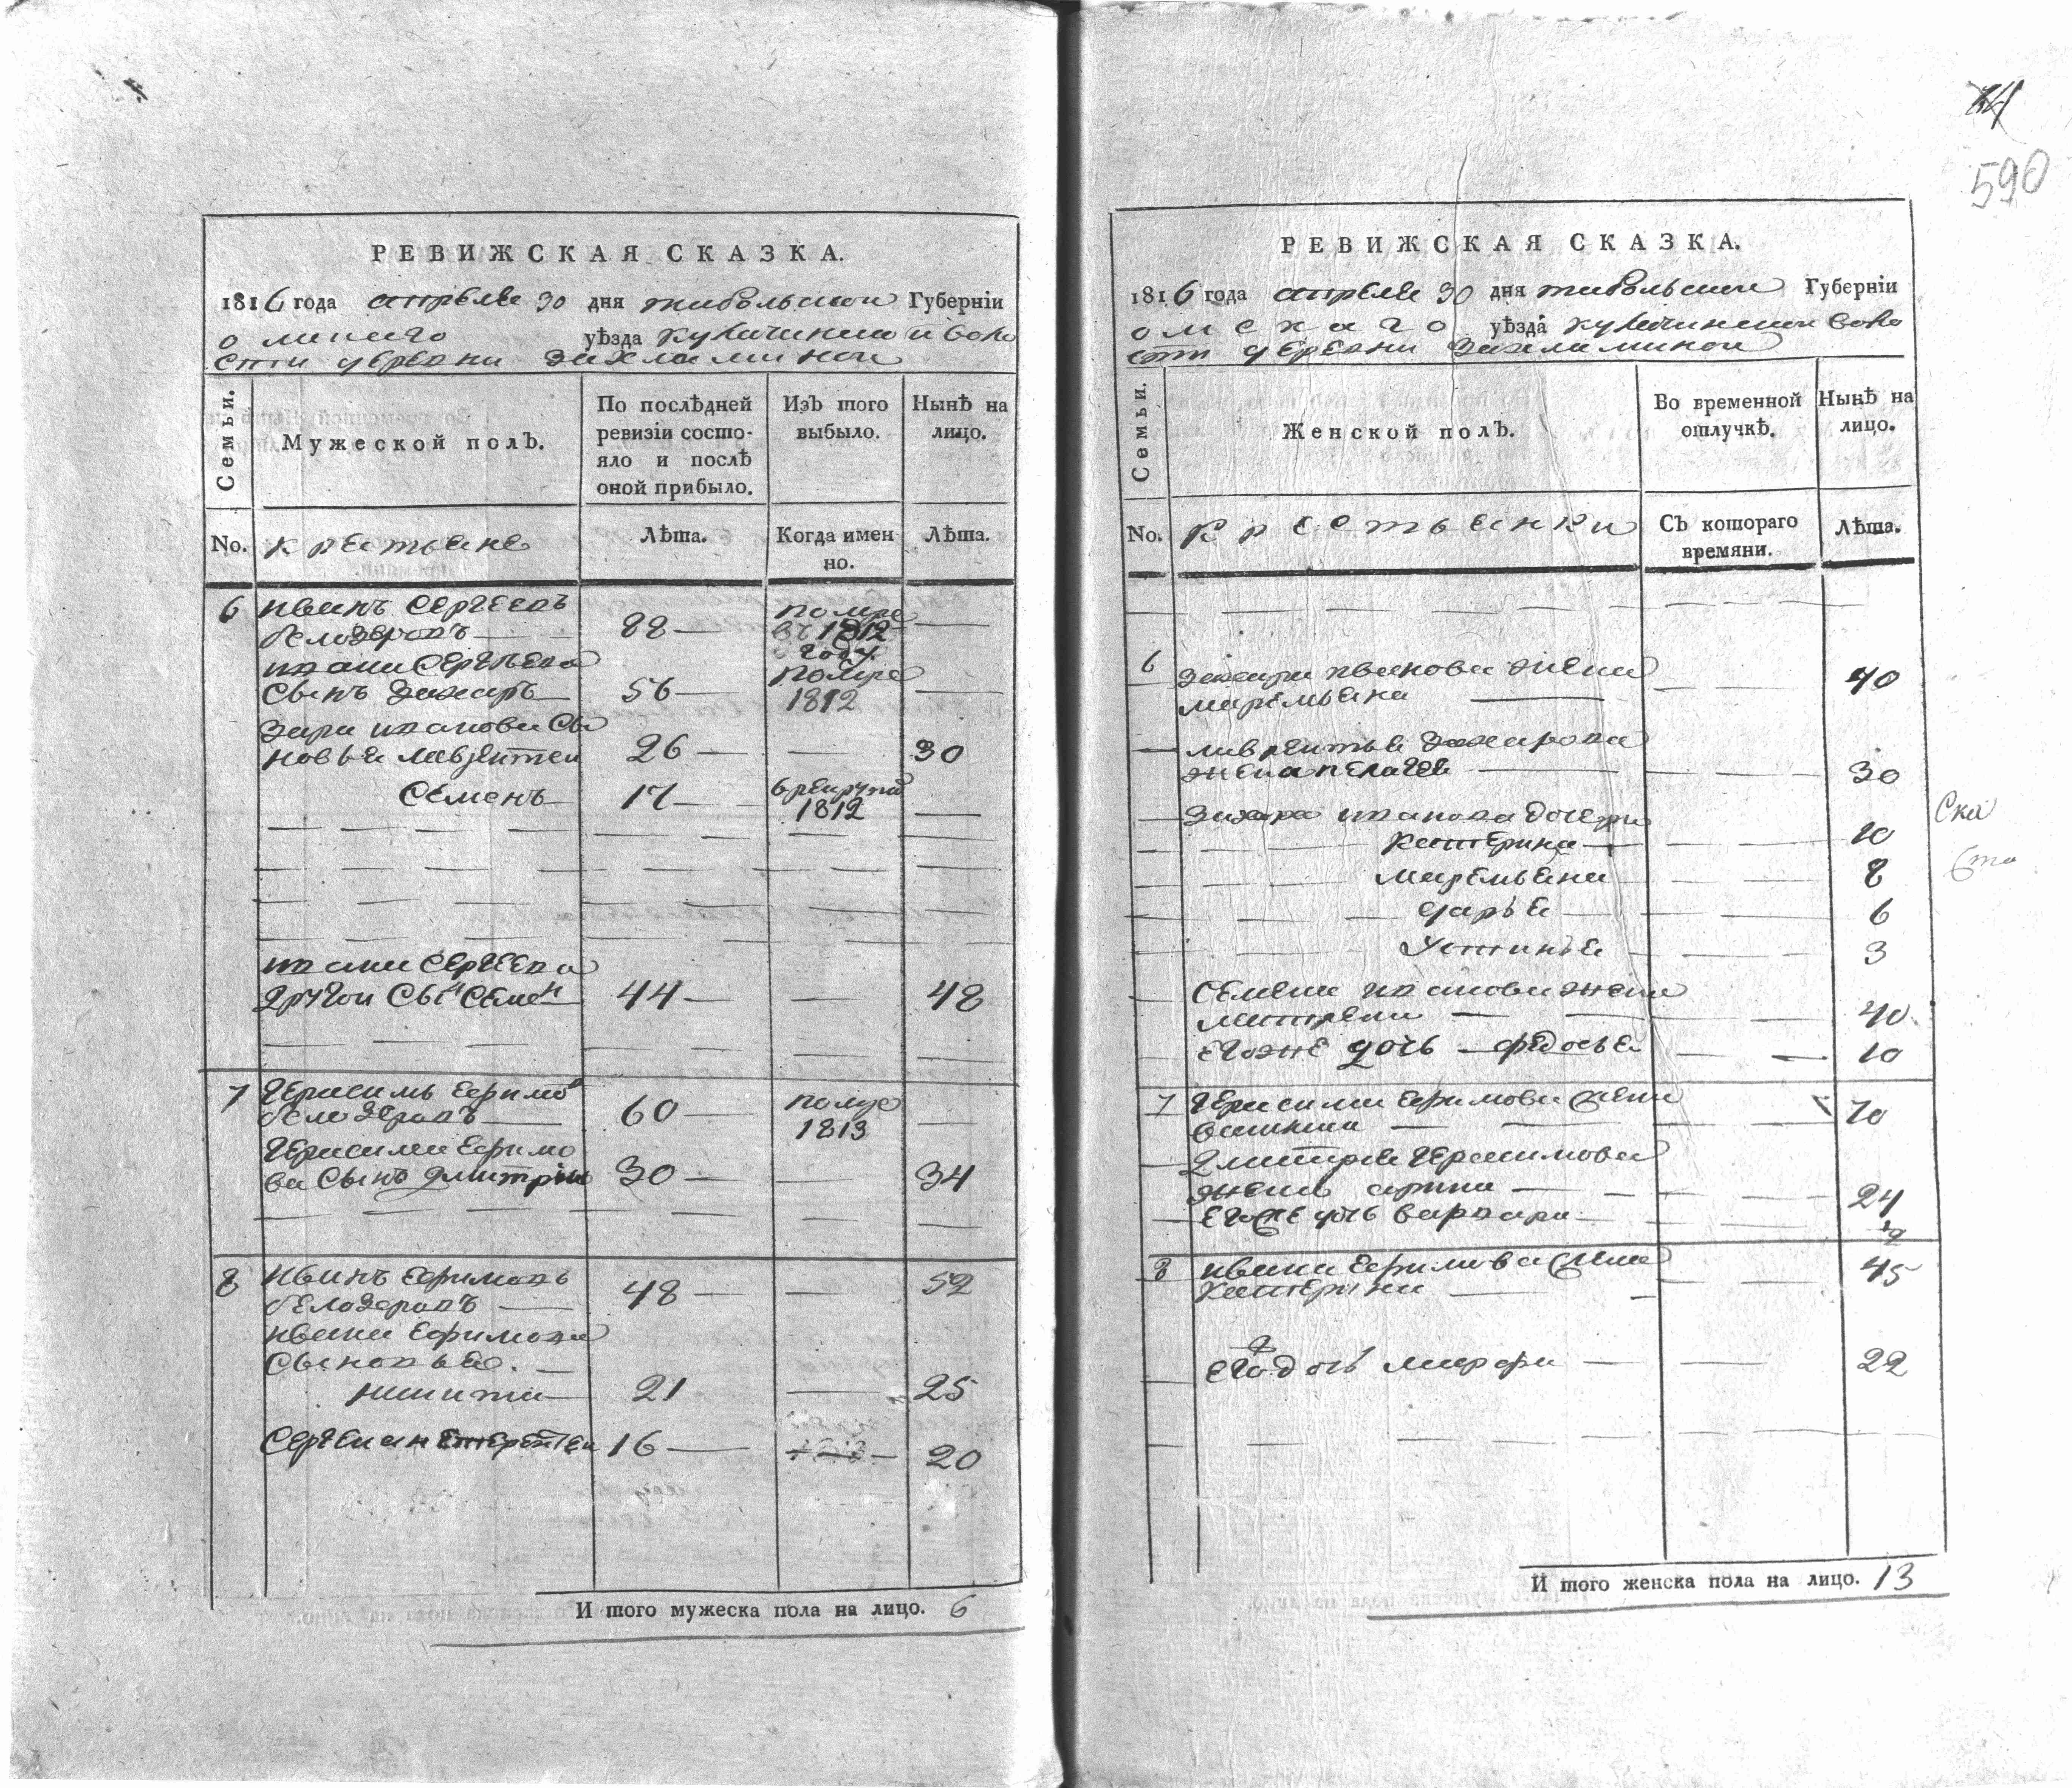 РЕВИЖСКАЯ СКАЗКА.
1816 года апреля 30 дня тобольской Губернїи
омского уѣзда кулачинской воло
сти деревни захламиной
Семьи.
Мужеской полЪ.
По послѣдней
ревизїи состо-
яло и послѣ
оной прибыло.
ИзЪ того
выбыло.
Нынѣ на
лицо.
No. крестьяне
Лѣта.
Когда имен
но.
Лѣта.
6 иванъ сергеевъ
белозеровъ 88 помре
въ 1812
году
ивана сергеева
сынъ захаръ 56 помре
1812
новья лаврентеи 26 30
семенъ 17 в рекруты
1812
ивана сергеева
другои сынъ семенъ 44 48
7 герасимъ ефимов
белозеровъ 60 помре
1813
герасима ефимо
ва сынъ дмитреи 30 34
8 иванъ ефимовъ
белозеровъ 48 52
ивана ефимова
сыновья.
никита 21 25
сергеи 16 20
И того мужеска пола на лицо. 6
590
РЕВИЖСКАЯ СКАЗКА.
1816 года апреля 30 дня тобольской Губернїи
омскаго уѣзда кулачинской воло
сти деревни захламиной
Семьи.
Женской полЪ.
Во временной
отлучкѣ.
Нынѣ на
лицо.
No. крестьянки
СЪ котораго
времяни.
Лѣта.
6 захара иванова жена
маремьяна 40
лаврентья захарова
жена пелагея 30
захара иванова дочери
катерина 10
маремьяна 8
дарья 6
устинья 3
Ска
семена иванова жена
матрена 40
егоже дочь федосья 10
7 герасима ефимова жена
70
дмитрея герасимова
жена анна 24
егоже дочь варвара
8 ивана ефимова жена
катерина 45
его дочь марфа 22
И того женска пола на лицо. 13